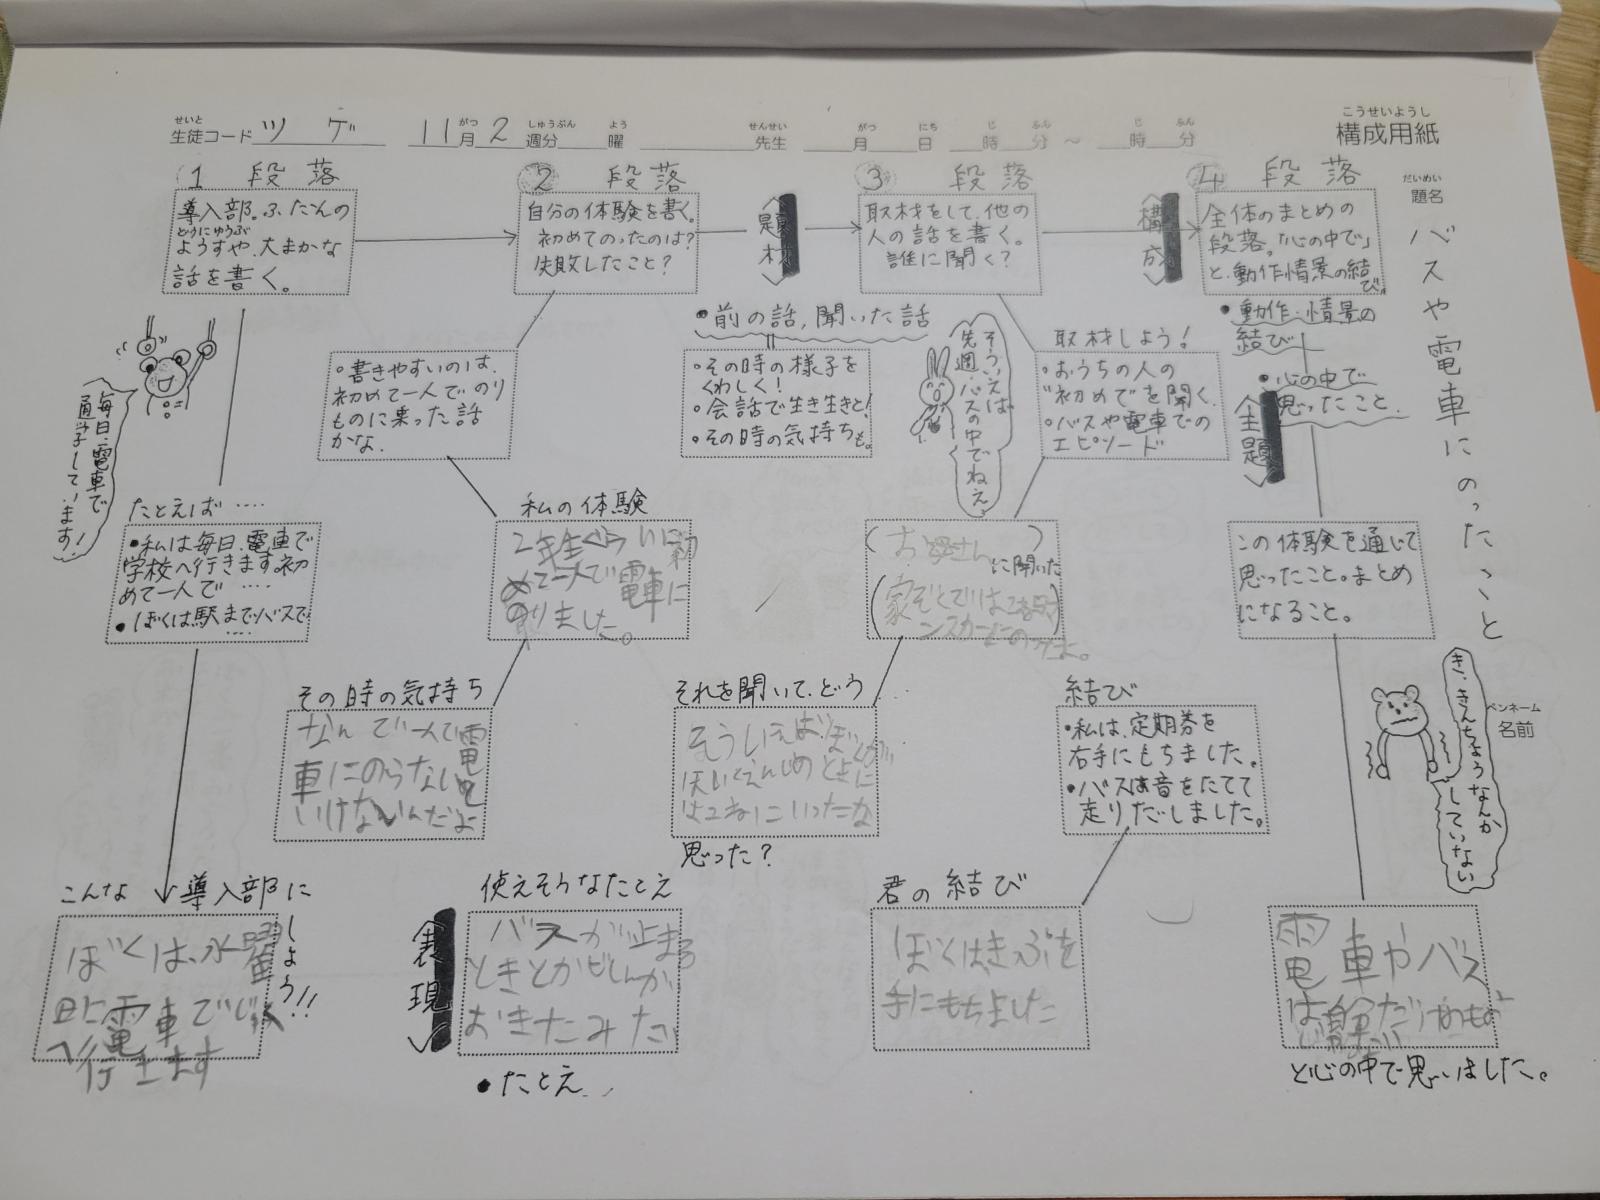 こうせいようし
構成用紙
せいと がつ しゅうぶん よう せんせい がつ にち じ ふん じ ふん
生徒コード ツゲ 11月2週分 曜 先生 月 日 時 分 ～ 時 分
だいめい
題名
バスや電車にのったこと
ペンネーム
名前
1 段落
導入部。ふだんの
どうにゅうぶ
ようすや、大まかな
話を書く。
毎日、電車で
通学しています!
たとえば‥‥
・私は毎日、電車で
学校へ行きます。初
めて一人で‥‥
・ぼくは駅までバスで
‥‥
こんな 導入部に
しよう!!
ぼくは、水曜
日に電車で
へ行きます
2 段落
自分の体験を書く。
初めてのったのは?
失敗したこと?
・書きやすいのは、
初めて一人でのり
ものに乗った話
かな。
私の体験
2年生ぐらいに初
めて一人で電車に
のりました。
その時の気持ち
なんで一人で電
車にのらないと
いけないんだよ
題材
・前の話,聞いた話
・その時の様子を
くわしく!
・会話で生き生きと!
・その時の気持ちも。
使えそうなたとえ
表現
バスが止まる
ときとかじしんが
おきたみたい
・たとえ
3 段落
取材をして、他の
人の話を書く。
誰に聞く?
そういえば
先週、バスの中でねえ
取材しよう!
・おうちの人の
"初めて"を聞く。
・バスや電車での
エピソード
(お母さん)に聞いた
それを聞いて、どう
そういえば、ぼくが
ほいくえんじのときに
思った?
構成
4 段落
全体のまとめの
段落。「心の中で」
と、動作情景の結
び。
・動作・情景の
結び
・心の中で
思ったこと
主題
この体験を通じて
思ったこと。まとめ
になること。
き、きんちょうなんか
していない
結び
・私は、定期券を
右手にもちました。
・バスは音をたてて
走りだしました。
君の結び
ぼくはきっぷを
手にもちました
電車やバス
と心の中で思いました。